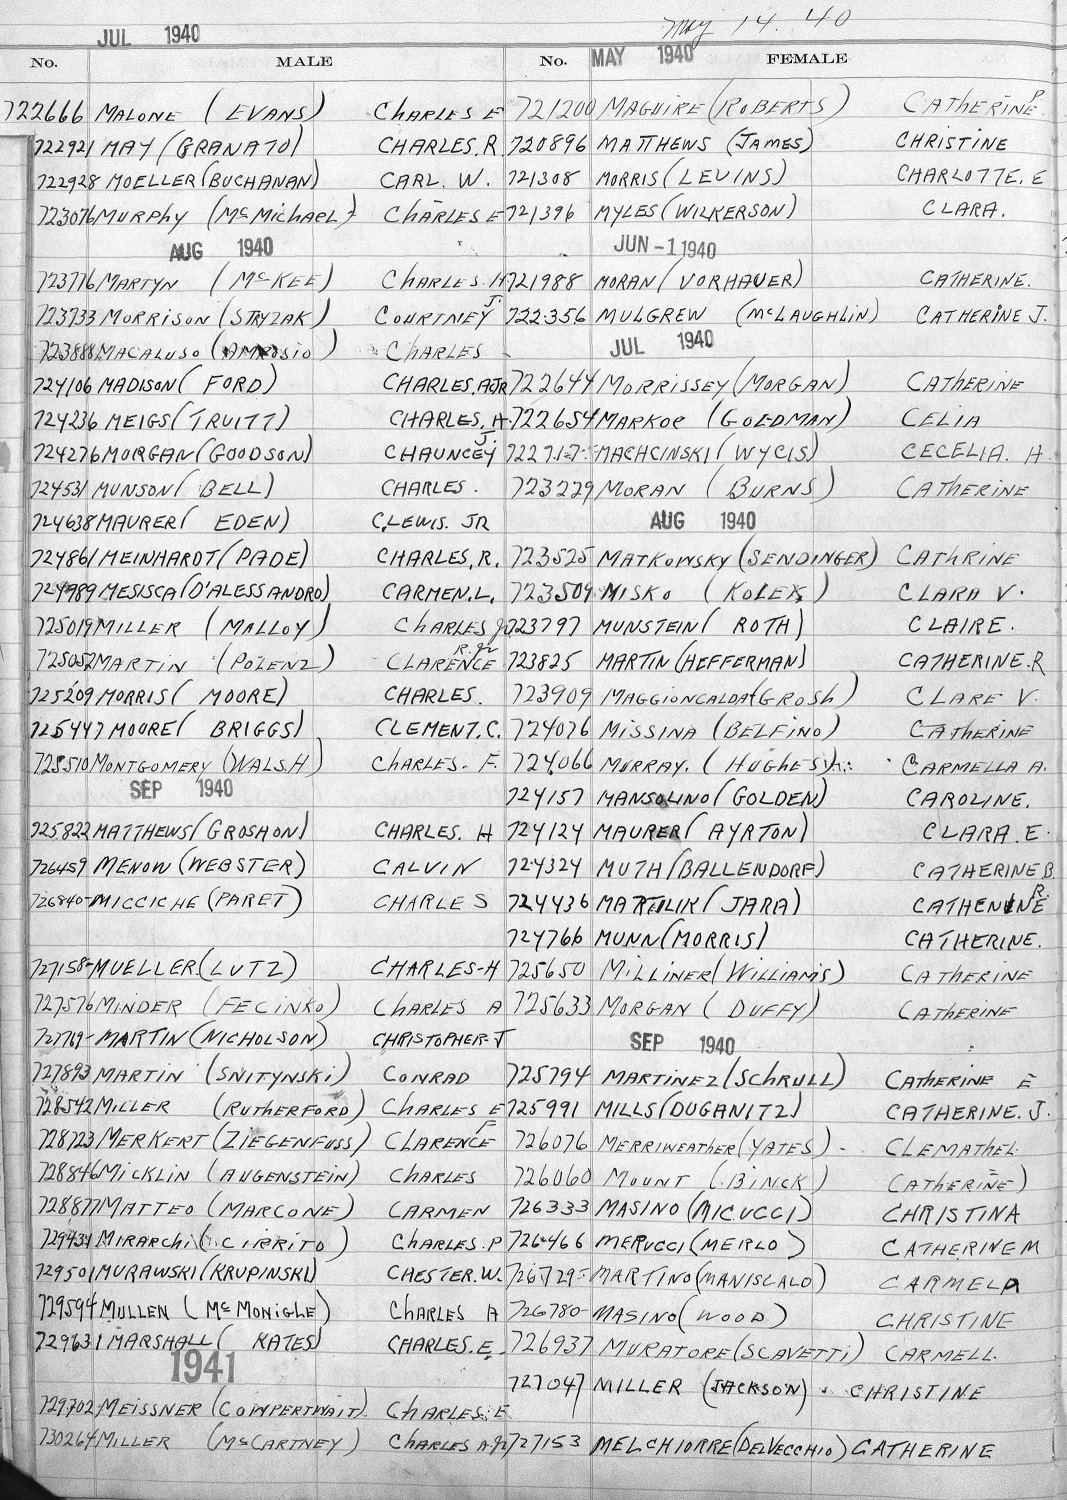 May 14. 40
JUL 1940
No. MALE No. MAY 1940 FEMALE
722666 MALONE (EVANS) CHARLES E 721200 MAGUIRE (ROBERTS) CATHERINE P.
722921 MAY (GRANATO) CHARLES. R. 720896 MATTHEWS (JAMES) CHRISTINE
722928 MOELLER (BUCHANAN) CARL. W. 721308 MORRIS (LEVINS) CHARLOTTE. E
723076 MURPHY (McMICHAEL) CHARLES E 721396 MYLES (WILKERSON) CLARA.
AUG 1940 JUN-1 1940
723776 MARTYN (McKEE) CHARLES. H 721988 MORAN (VORHAUER) CATHERINE.
723733 MORRISON (STRYZAK) COURTNEY J. 722356 MULGREW (McLAUGHLIN) CATHERINE J.
723888 MACALUSO (AMROSIO) CHARLES JUL 1940
724106 MADISON (FORD) CHARLES. A JR 722644 MORRISSEY (MORGAN) CATHERINE
724236 MEIGS (TRUITT) CHARLES. H. 722654 MARKOE (GOLDMAN) CELIA
724276 MORGAN (GOODSON) CHAUNCEY J. MACHCINSKI (WYCIS) CECELIA. H.
724531 MUNSON (BELL) CHARLES. 723229 MORAN (BURNS) CATHERINE
724638 MAURER (EDEN) C. LEWIS. JR AUG 1940
724861 MEINHARDT (PADE) CHARLES. R. 723525 MATKOWSKY (SENDINGER) CATHRINE
724989 MESISCA (D'ALESSANDRO) CARMEN. L. 723509 MISKO (KOLEX) CLARA V.
725019 MILLER (MALLOY) CHARLES Jr 723797 MUNSTEIN (ROTH) CLAIRE.
725052 MARTIN (POLENZ) CLARENCE R. Jr 723825 MARTIN (HEFFERMAN) CATHERINE. R
725209 MORRIS (MOORE) CHARLES. 723909 MAGGIONCALDA (GROSH) CLARE V.
725447 MOORE (BRIGGS) CLEMENT. C. 724076 MISSINA (BELFINO) CATHERINE
725510 MONTGOMERY (WALSH) CHARLES. F. 724066 MURRAY. (HUGHES) CARMELLA A.
SEP 1940 724157 MANSOLINO (GOLDEN) CAROLINE.
725822 MATTHEWS (GROSHON) CHARLES. H 724124 MAURER (AYRTON) CLARA. E.
726459 MENOW (WEBSTER) CALVIN 724324 MUTH (BALLENDORF) CATHERINE B.
726840 MICCICHE (PARET) CHARLES 724436 MARTILIK (JARA) CATHENINE R.
724766 MUNN (MORRIS) CATHERINE.
727158 MUELLER (LUTZ) CHARLES-H 725650 MILLINER (WILLIAMS) CATHERINE
727576 MINDER (FECINKO) CHARLES A 725633 MORGAN (DUFFY) CATHERINE
727769 MARTIN (NICHOLSON) CHRISTOPHER. J SEP 1940
727893 MARTIN (SNITYNSKI) CONRAD 725794 MARTINEZ (SCHRULL) CATHERINE E
728542 MILLER (RUTHERFORD) CHARLES E 725991 MILLS (DUGANITZ) CATHERINE. J.
728723 MERKERT (ZIEGENFUSS) CLARENCE F 726076 MERRIWEATHER (YATES) CLEMATHEL.
728846 MICKLIN (AUGENSTEIN) CHARLES 726060 MOUNT (BINCK) CATHERINE)
728877 MATTEO (MARCONE) CARMEN 726333 MASINO (MICUCCI) CHRISTINA
729434 MIRARCHI (CIRRITO) CHARLES. P 726466 MERUCCI (MERLO) CATHERINE M
729501 MURAWSKI (KRUPINSKI) CHESTER. W. 726729 MARTINO (MANISCALO) CARMELA
729594 MULLEN (McMONIGLE) CHARLES A 726780 MASINO (WOOD) CHRISTINE
729631 MARSHALL (KATES) CHARLES. E. 726937 MURATORE (SCAVETTI) CARMELL.
1941 727047 MILLER (JACKSON). CHRISTINE
729702 MEISSNER (COWPERTWAIT) CHARLES. E
730264 MILLER (McCARTNEY) CHARLES A. Jr 727153 MELCHIORRE (DELVECCHIO) CATHERINE